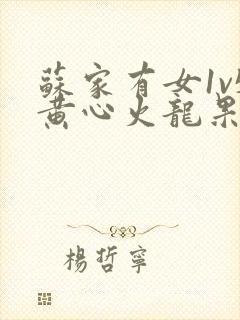 蘇家有女1v
黃心火龍果
楊哲寧